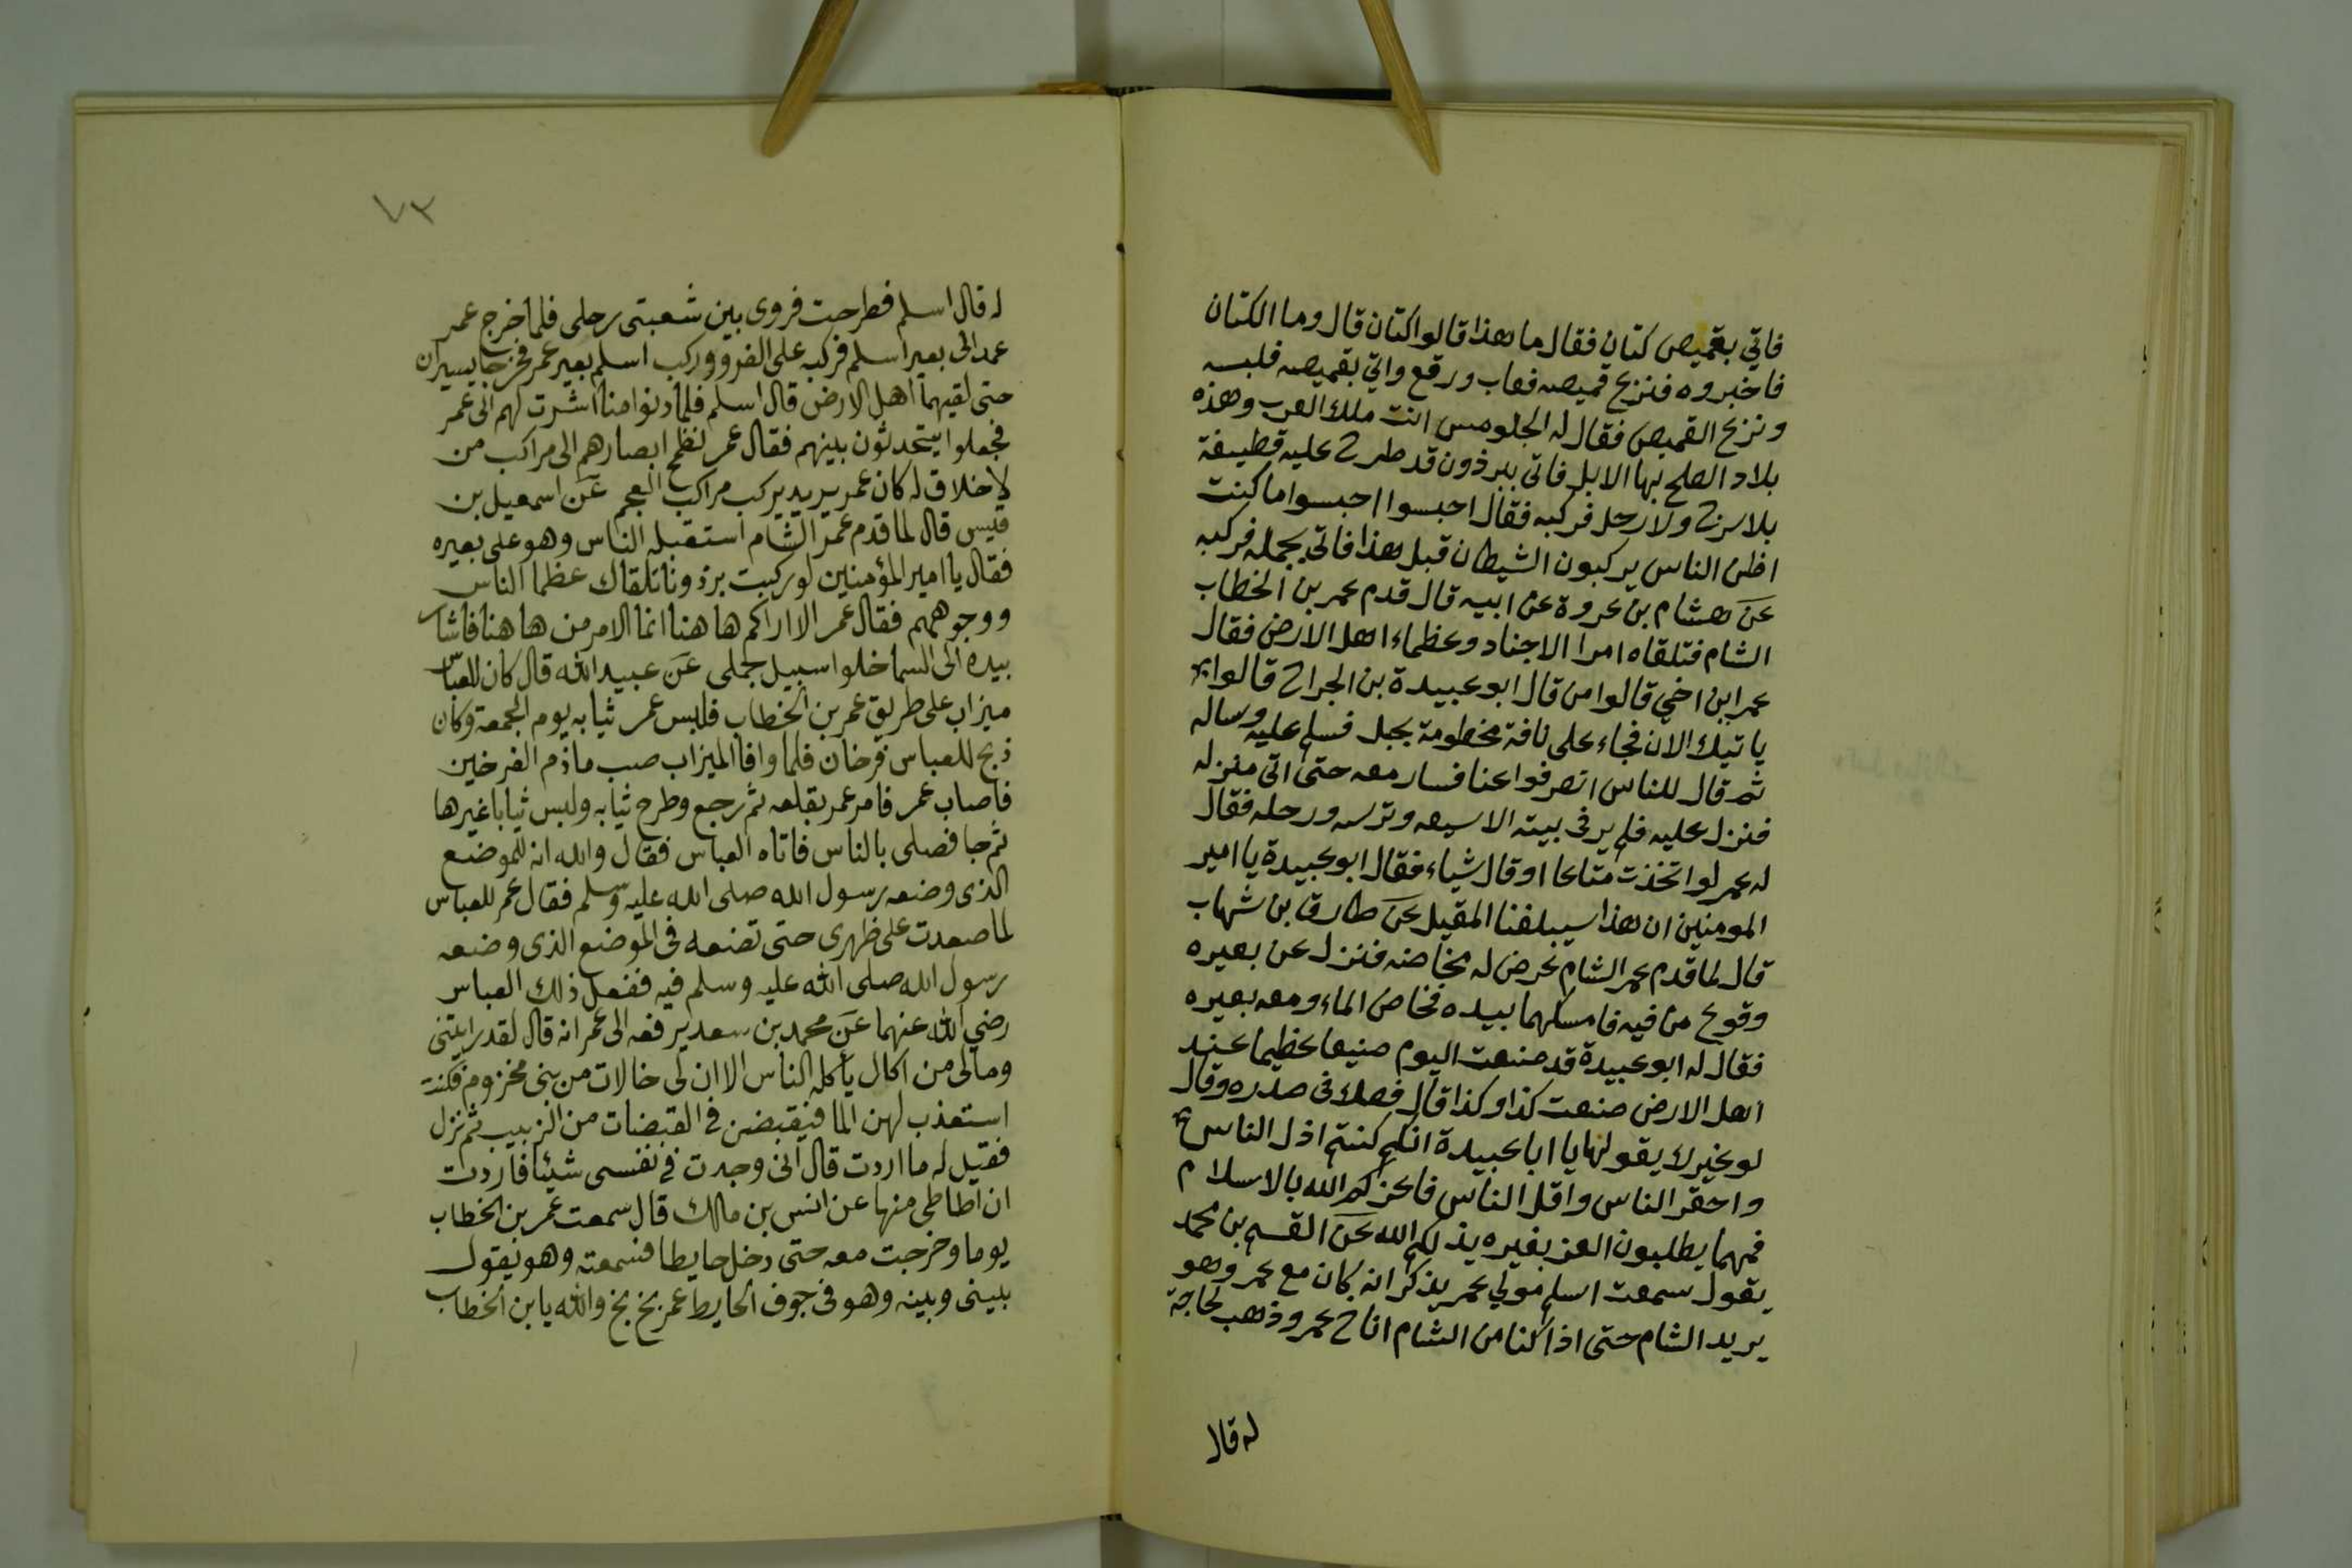 فاتي بقميص كتان فقال ما هذا قالوا كتان قال وما الكتان
فاخبروه فنزع قميصه فغاب ورقع واتي بقميصه فلبسه
ونزع القميص فقال له الجلومس انت ملك العرب وهذه
بلاد لا يصلح بها الابل فاتى ببرذون قد طرح عليه قطيفة
بلا سرج ولا رحل فركبه فقال احبسوا احبسوا ما كنت
اظن الناس يركبون الشيطان قبل هذا فاتي بجمله فركبه
عن هشام بن عروة عن ابيه قال قدم عمر بن الخطاب
الشام فتلقاه امرا الاجناد وعظماء اهل الارض فقال
عمر اين اخي قالوا من قال ابو عبيدة بن الجراح قالوا
ياتيك الان فجاء على ناقة مخطومة بحبل فسلم عليه وساله
ثم قال للناس انصرفوا عنا فسار معه حتى اتى منزله
فنزل عليه فلم ير في بيته الا سيفه وترسه ورحله فقال
له عمر لو اتخذت متاعا او قال شياء فقال ابو عبيدة يا امير
المومنين ان هذا سيبلغنا المقيل عن طارق بن شهاب
قال لما قدم عمر الشام عرض له مخاضه فنزل عن بعيره
ونزع من فيه فامسكهما بيده فخاض الماء ومعه بعيره
فقال له ابو عبيدة قد صنعت اليوم صنيعا عظيما عند
اهل الارض صنعت كذا وكذا قال فصك في صدره وقال
لو غيرك يقولها يا ابا عبيدة انكم كنتم اذل الناس
واحقر الناس واقل الناس فاعزكم الله بالاسلام
فمهما يطلبون العز بغيره يذلكم الله عن القسم بن محمد
يقول سمعت اسلم مولي عمر يذكر انه كان مع عمر وهو
يريد الشام حتى اذا كنا من الشام اناخ عمر وذهب لحاجة
له قال
٧٣
له قال اسلم فطرحت فروى بين شعبتى رحلى فلما خرج عمر
عمد الى بعير اسلم فركبه على الفرو وركب اسلم بعير عمر فخرجا يسيران
حتى لقيهما اهل الارض قال اسلم فلما دنوا منا اشرت لهم الى عمر
فجعلوا يتحدثون بينهم فقال عمر تطمح ابصارهم الى مراكب من
لا خلاق له كان عمر يريد يركب مراكب العجم عن اسمعيل بن
قيس قال لما قدم عمر الشام استقبله الناس وهو على بعيره
فقال يا امير المؤمنين لو ركبت برذونا تلقاك عظما الناس
ووجوههم فقال عمر الا اراكم ها هنا انما الامر من ها هنا فاشار
بيده الى السما خلوا سبيل جملى عن عبيد الله قال كان للعباس
ميزاب على طريق عمر بن الخطاب فلبس عمر ثيابه يوم الجمعة وكان
ذبح للعباس فرخان فلما وافا الميزاب صب ما دم الفرخين
فاصاب عمر فامر عمر بقلعه ثم رجع وطرح ثيابه ولبس ثيابا غيرها
ثم جا فصلى بالناس فاتاه العباس فقال والله انه للموضع
الذى وضعه رسول الله صلى الله عليه وسلم فقال عمر للعباس
لما صعدت على ظهرى حتى تضعه فى الموضع الذى وضعه
رسول الله صلى الله عليه وسلم فيه ففعل ذلك العباس
رضي الله عنهما عن محمد بن سعد يرفعه الى عمر انه قال لقد رايتنى
ومالى من اكال ياكله الناس الا ان لى خالات من بنى مخزوم فكنت
استعذب لهن الما فيقبضن فى القبضات من الزبيب ثم نزل
فقيل له ما اردت قال انى وجدت فى نفسى شيئا فاردت
ان اطاطى منها عن انس بن مالك قال سمعت عمر بن الخطاب
يوما وخرجت معه حتى دخل حايطا فسمعته وهو يقول
بينى وبينه وهو فى جوف الحايط عمر بخ بخ والله يا بن الخطاب